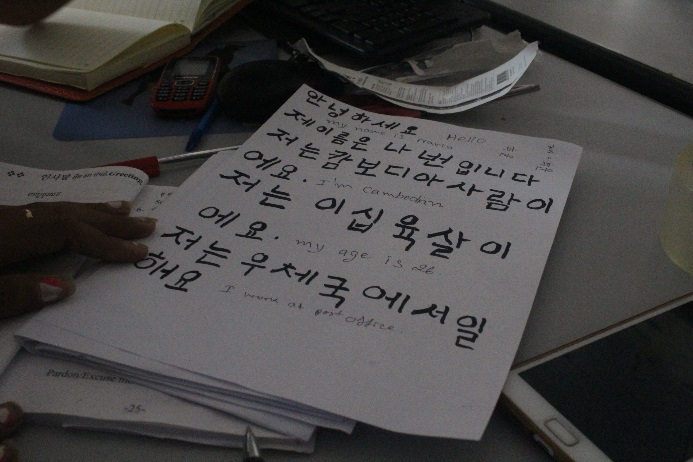 안녕하세요 Hello
my name is
제 이름은 나번입니다
저는 캄보디아 사람이
에요. I'm Cambodian
저는 이십육살이
에요. my age is 26
저는 우체국에서 일
해요 I work at post office
Greeting
Pardon/Excuse me
-25-